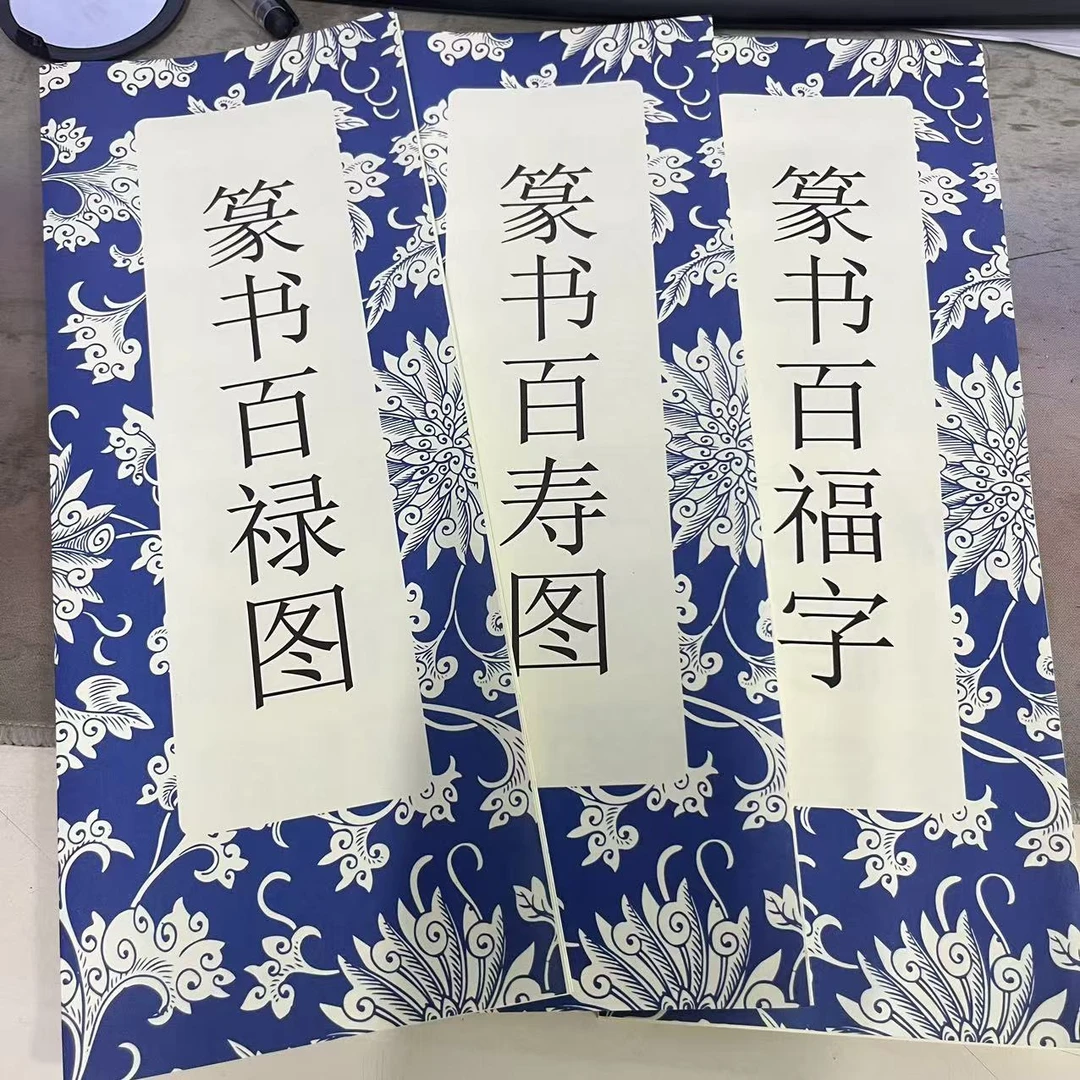 篆书百禄图
篆书百寿图
篆书百福字